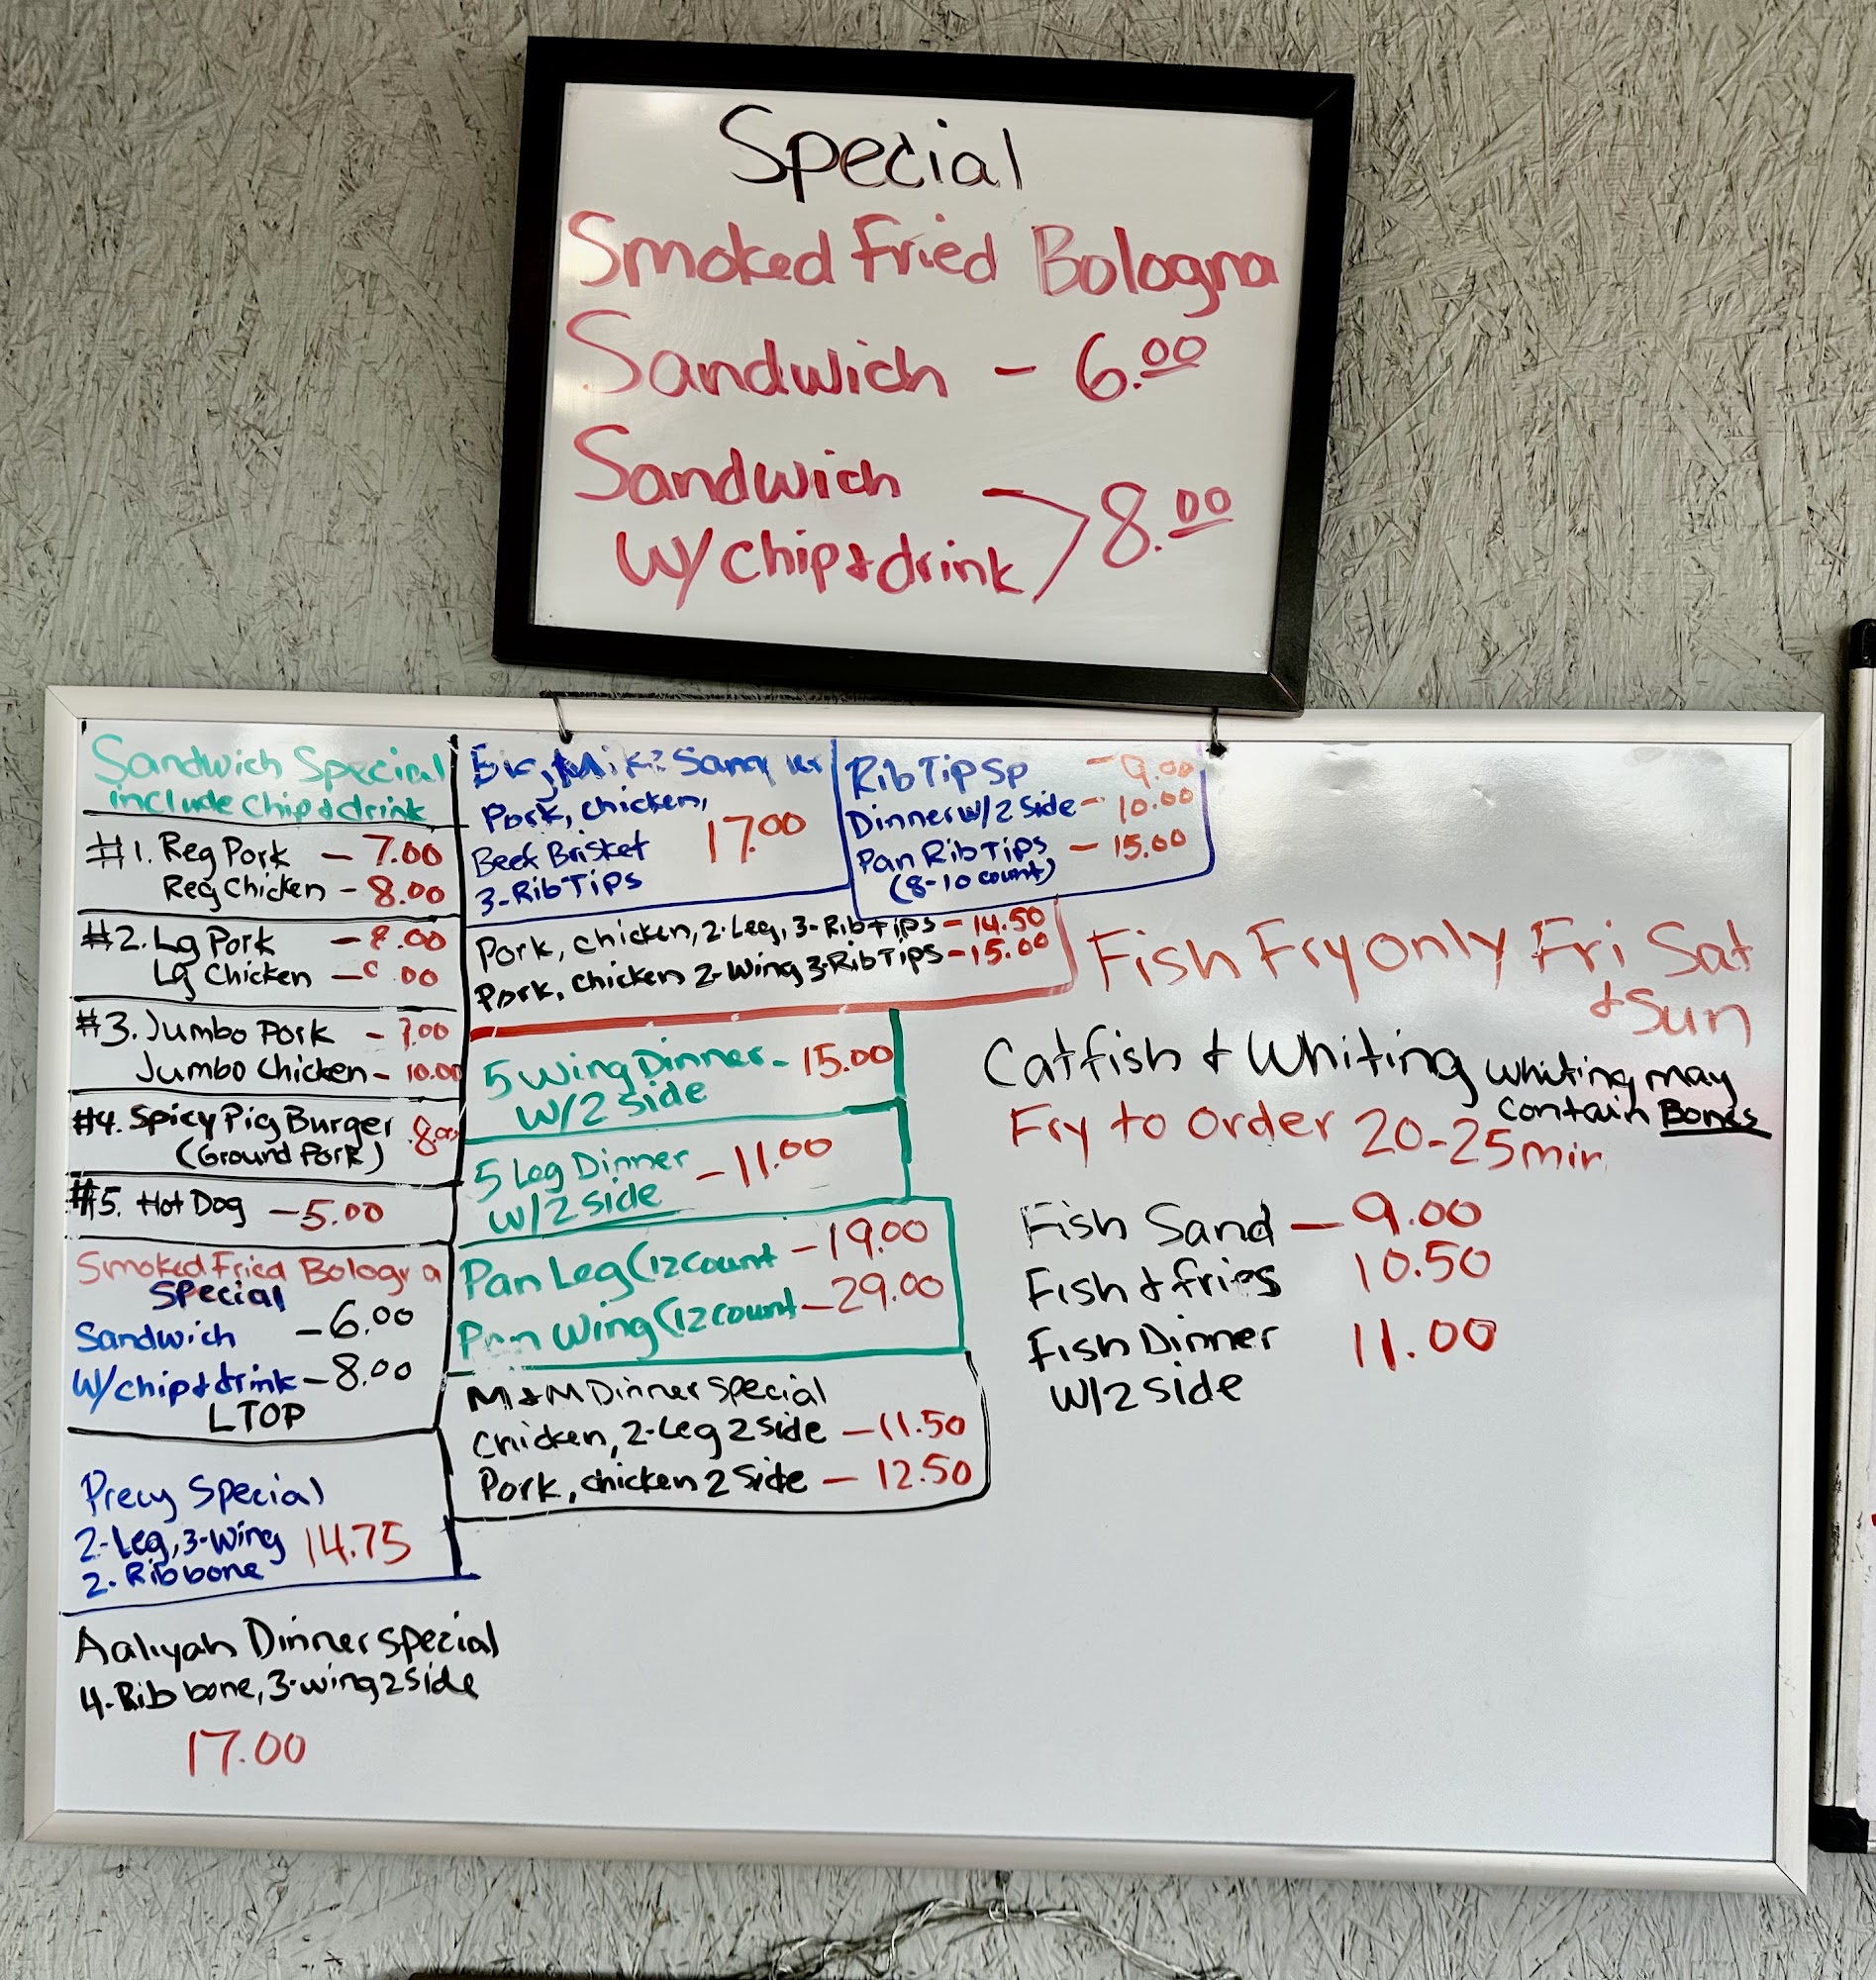 Special
Smoked Fried Bologna
Sandwich - 6.00
Sandwich
W/ chip & drink > 8.00
Sandwich Special
include chip & drink
#1. Reg Pork - 7.00
Reg Chicken - 8.00
#2. Lg Pork - 8.00
Lg Chicken - .00
#3. Jumbo Pork - .00
Jumbo Chicken - 10.00
#4. Spicy Pig Burger 8.00
(Ground Pork)
#5. Hot Dog - 5.00
Smoked Fried Bologna
Special
Sandwich - 6.00
W/ chip & drink - 8.00
LTOP
Special
2-Leg, 3-Wing 14.75
2. Rib bone
Aaliyah Dinner Special
4-Rib bone, 3-wing 2 side
17.00
Pork, chicken,
17.00
Beef Brisket
3-Rib Tips
Rib Tip SP - 9.00
Dinner W/2 side - 10.00
Pan Rib Tips - 15.00
(8-10 count)
Pork, chicken, 2-Leg, 3-Rib tips - 14.50
Pork, chicken 2-Wing 3-Rib Tips - 15.00
5 Wing Dinner - 15.00
W/2 side
5 Leg Dinner - 11.00
W/2 side
Pan Leg (12 count - 19.00
Pan Wing (12 count - 29.00
M & M Dinner Special
Chicken, 2-Leg 2 side - 11.50
Pork, chicken 2 Side - 12.50
Fish Fry only Fri Sat
& Sun
Catfish & Whiting Whiting may
contain Bones
Fry to Order 20-25 min
Fish Sand - 9.00
Fish & fries 10.50
Fish Dinner 11.00
W/2 side